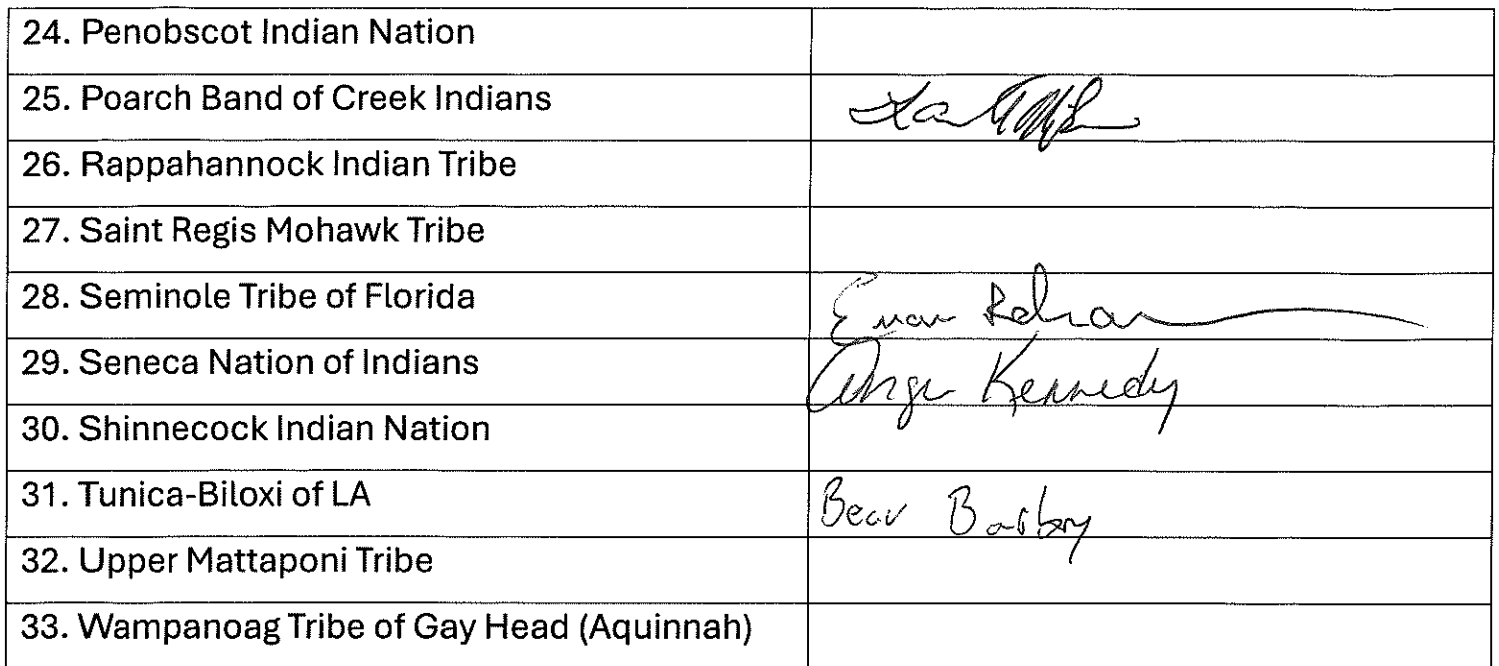 24. Penobscot Indian Nation
25. Poarch Band of Creek Indians
26. Rappahannock Indian Tribe
27. Saint Regis Mohawk Tribe
28. Seminole Tribe of Florida
29. Seneca Nation of Indians Kennedy
30. Shinnecock Indian Nation
31. Tunica-Biloxi of LA Bear
32. Upper Mattaponi Tribe
33. Wampanoag Tribe of Gay Head (Aquinnah)